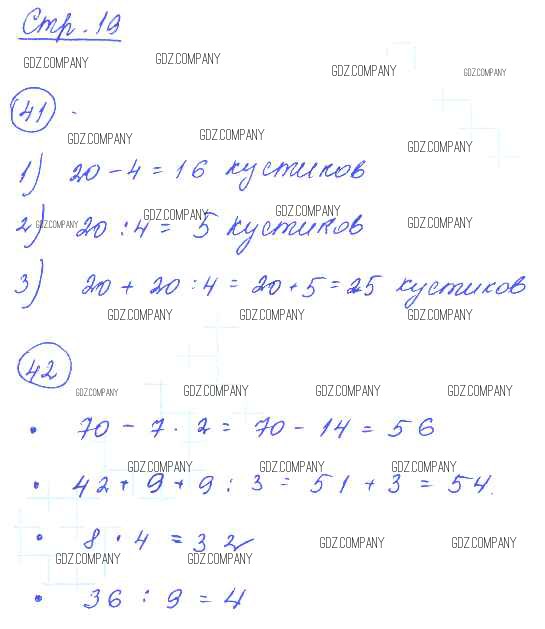 Стр. 19
GDZ.COMPANY GDZ.COMPANY GDZ.COMPANY GDZ.COMPANY
41
GDZ.COMPANY GDZ.COMPANY GDZ.COMPANY
1) 20 - 4 = 16 кустиков
GDZ.COMPANY GDZ.COMPANY GDZ.COMPANY GDZ.COMPANY
2) 20 : 4 = 5 кустиков
3) 20 + 20 : 4 = 20 + 5 = 25 кустиков
GDZ.COMPANY GDZ.COMPANY GDZ.COMPANY
42
GDZ.COMPANY GDZ.COMPANY GDZ.COMPANY GDZ.COMPANY
• 70 - 7 · 2 = 70 - 14 = 56
GDZ.COMPANY GDZ.COMPANY GDZ.COMPANY
• 42 + 9 + 9 : 3 = 51 + 3 = 54.
• 8 · 4 = 32
GDZ.COMPANY GDZ.COMPANY
GDZ.COMPANY GDZ.COMPANY
• 36 : 9 = 4